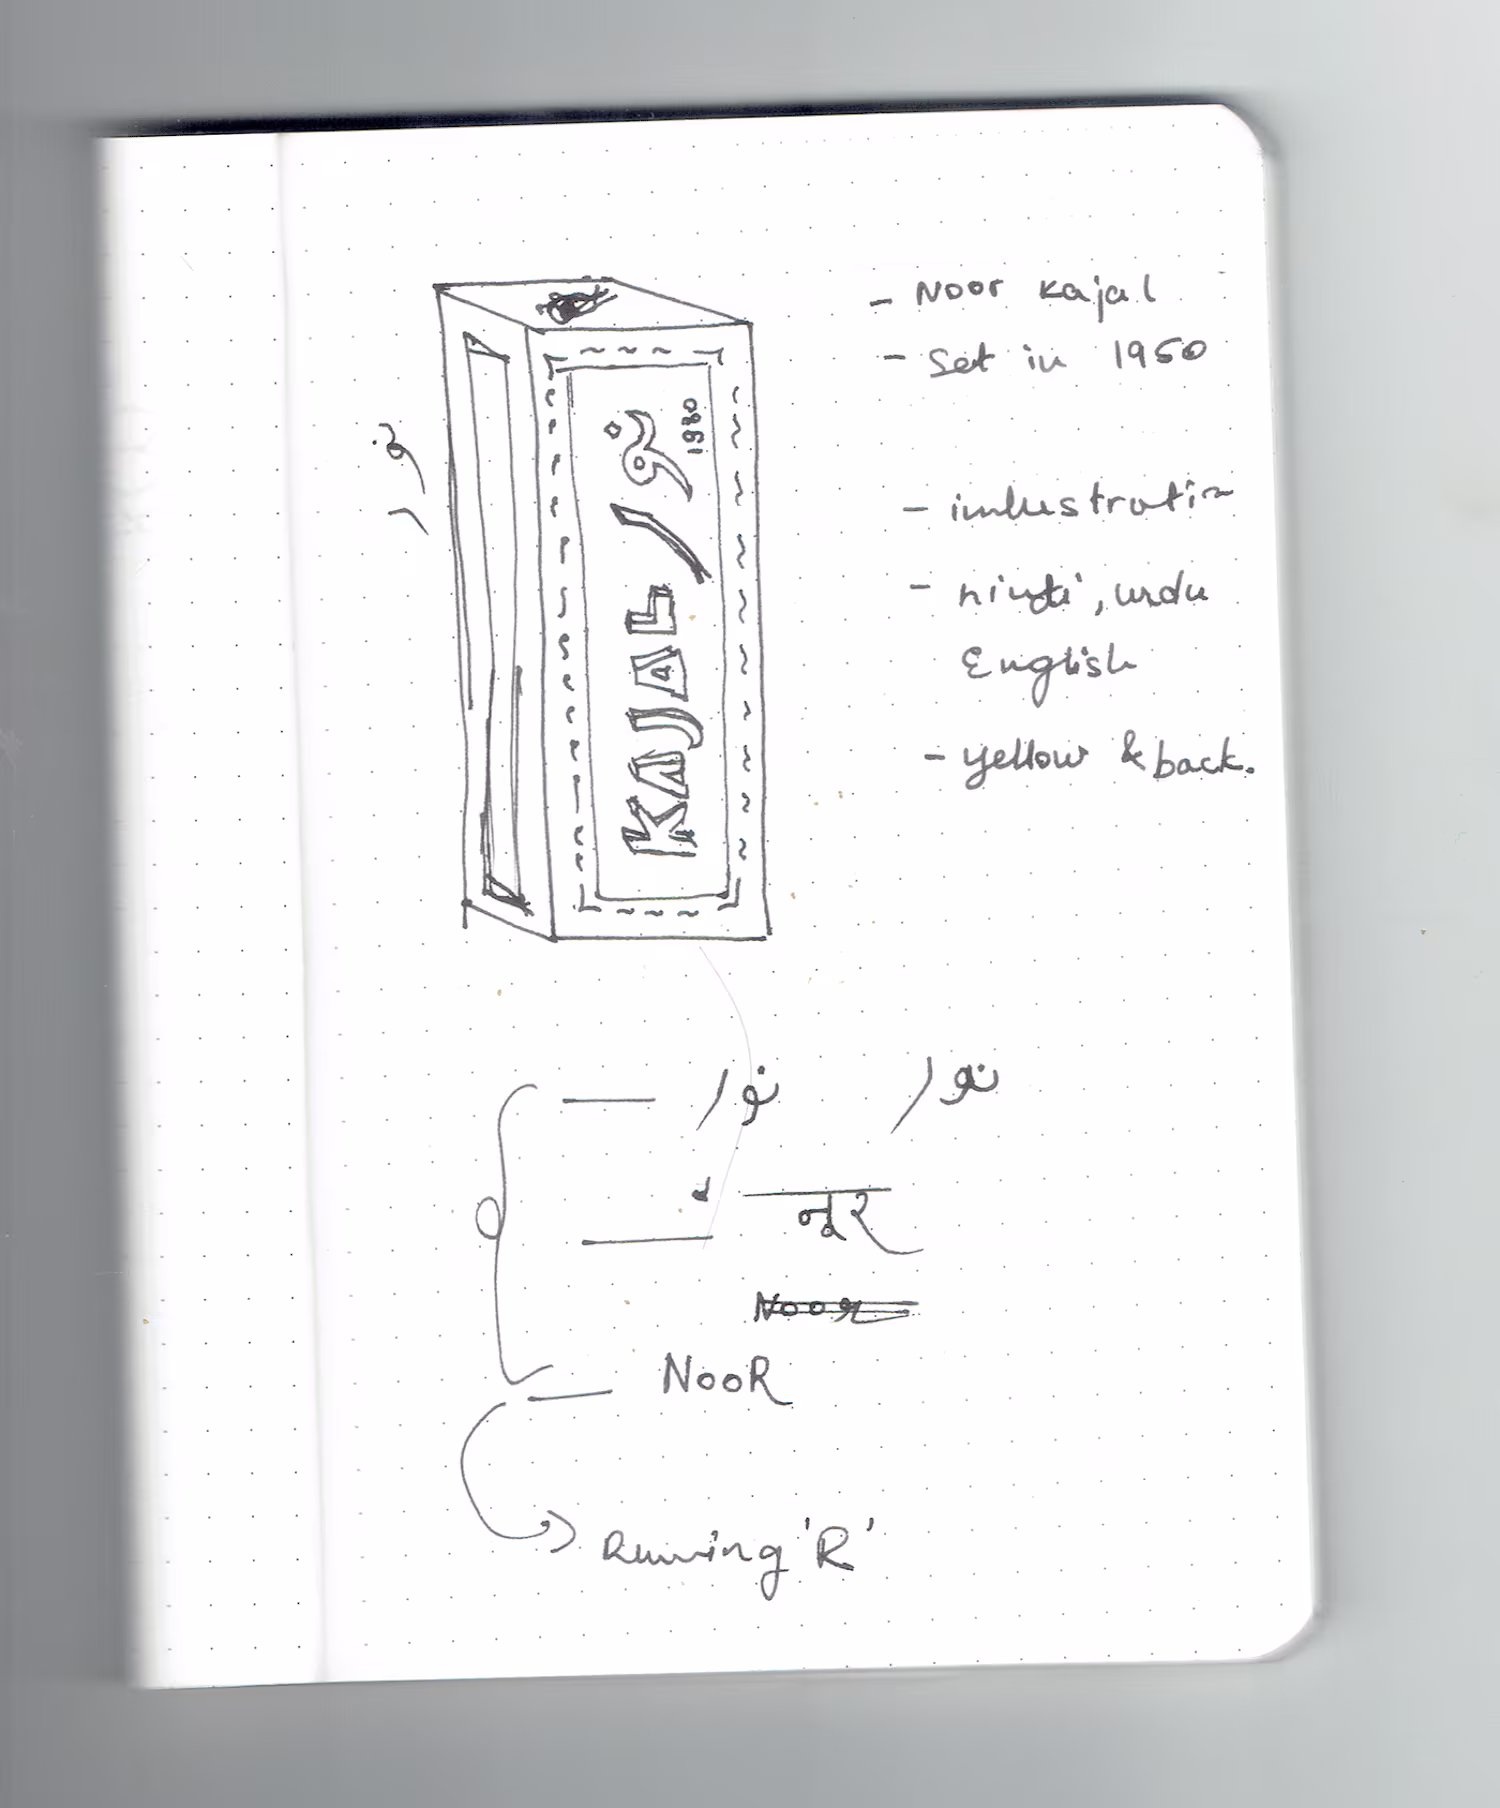 - Noor Kajal
- Set in 1950
نور
KAJAL نور
1980
- hindi, urdu
English
- yellow & back.
نور نور
नूर
Noor
NooR
Running 'R'